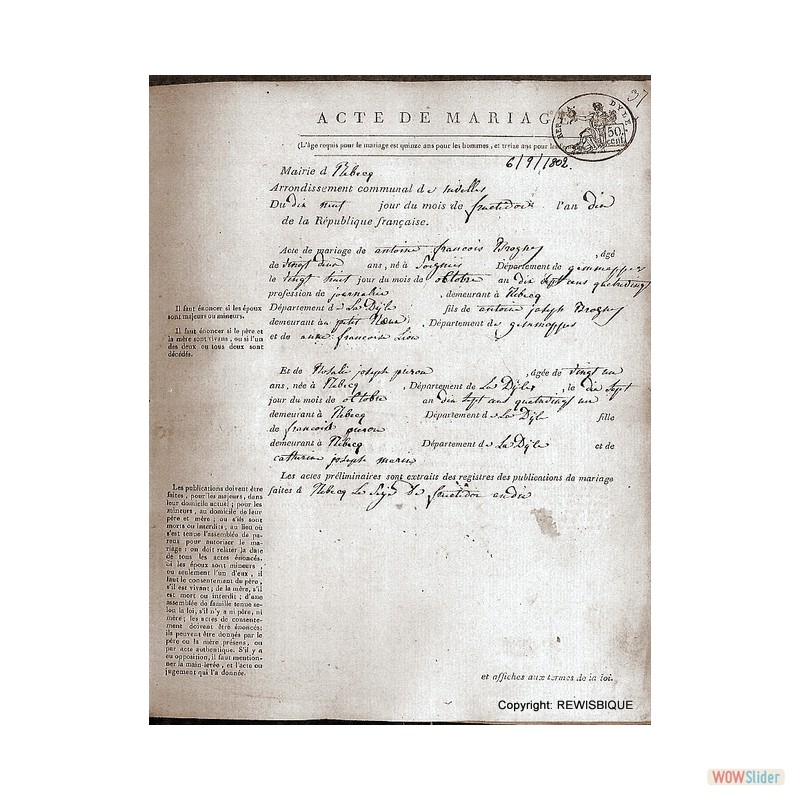 37
ACTE DE MARIAGE
REP. FRA. DYLE
50 cent.
(L'âge requis pour le mariage est quinze ans pour les hommes, et treize ans pour les
6/9/1802.
Mairie d Rebecq
Arrondissement communal de nivelles
Du dix neuf jour du mois de fructidor l'an dix
de la République française.
Acte de mariage de antoine francois Brogniez , âgé
de vingt deux ans, né à Soignies Département de gemmappes
le vingt huit jour du mois de octobre an dix sept cens quatrevingt
profession de journalier , demeurant à Rebecq
Département de La Dÿle fils de antoine joseph Brogniez
demeurant à petit Rœux , Département de gemmappes
et de anne francoise Lion
Il faut énoncer si les époux
sont majeurs ou mineurs.
Il faut énoncer si le père et
la mère sont vivans, ou si l'un
des deux ou tous deux sont
décédés.
Et de Rosalie joseph pieron , âgée de vingt un
ans, née à Rebecq , Département de La Dÿle , le dix sept
jour du mois de octobre an dix sept cens quatrevingt un
demeurant à Rebecq Département de La Dÿle fille
de francois pieron
demeurant à Rebecq Département de La Dÿle et de
catherine joseph
Les actes préliminaires sont extraits des registres des publications de mariage
faites à Rebecq Le De fructidor an dix
Les publications doivent être
faites, pour les majeurs, dans
leur domicile actuel; pour les
mineurs, au domicile de leur
père et mère; ou s'ils sont
morts ou interdits, au lieu où
s'est tenue l'assemblée de pa-
rens pour autoriser le ma-
riage: on doit relater la date
de tous les actes énoncés.
Si les époux sont mineurs,
ou seulement l'un d'eux, il
faut le consentement du père,
s'il est vivant; de la mère, s'il
est mort ou interdit; d'une
assemblée de famille tenue se-
lon la loi, s'il n'y a ni père, ni
mère; les actes de consente-
ment doivent être énoncés:
ils peuvent être donnés par le
père ou la mère présens, ou
par acte authentique. S'il y a
eu opposition, il faut mention-
ner la main-levée, et l'acte ou
jugement qui l'a donnée.
et affiches aux termes de la loi.
Copyright: REWISBIQUE
WOWSlider